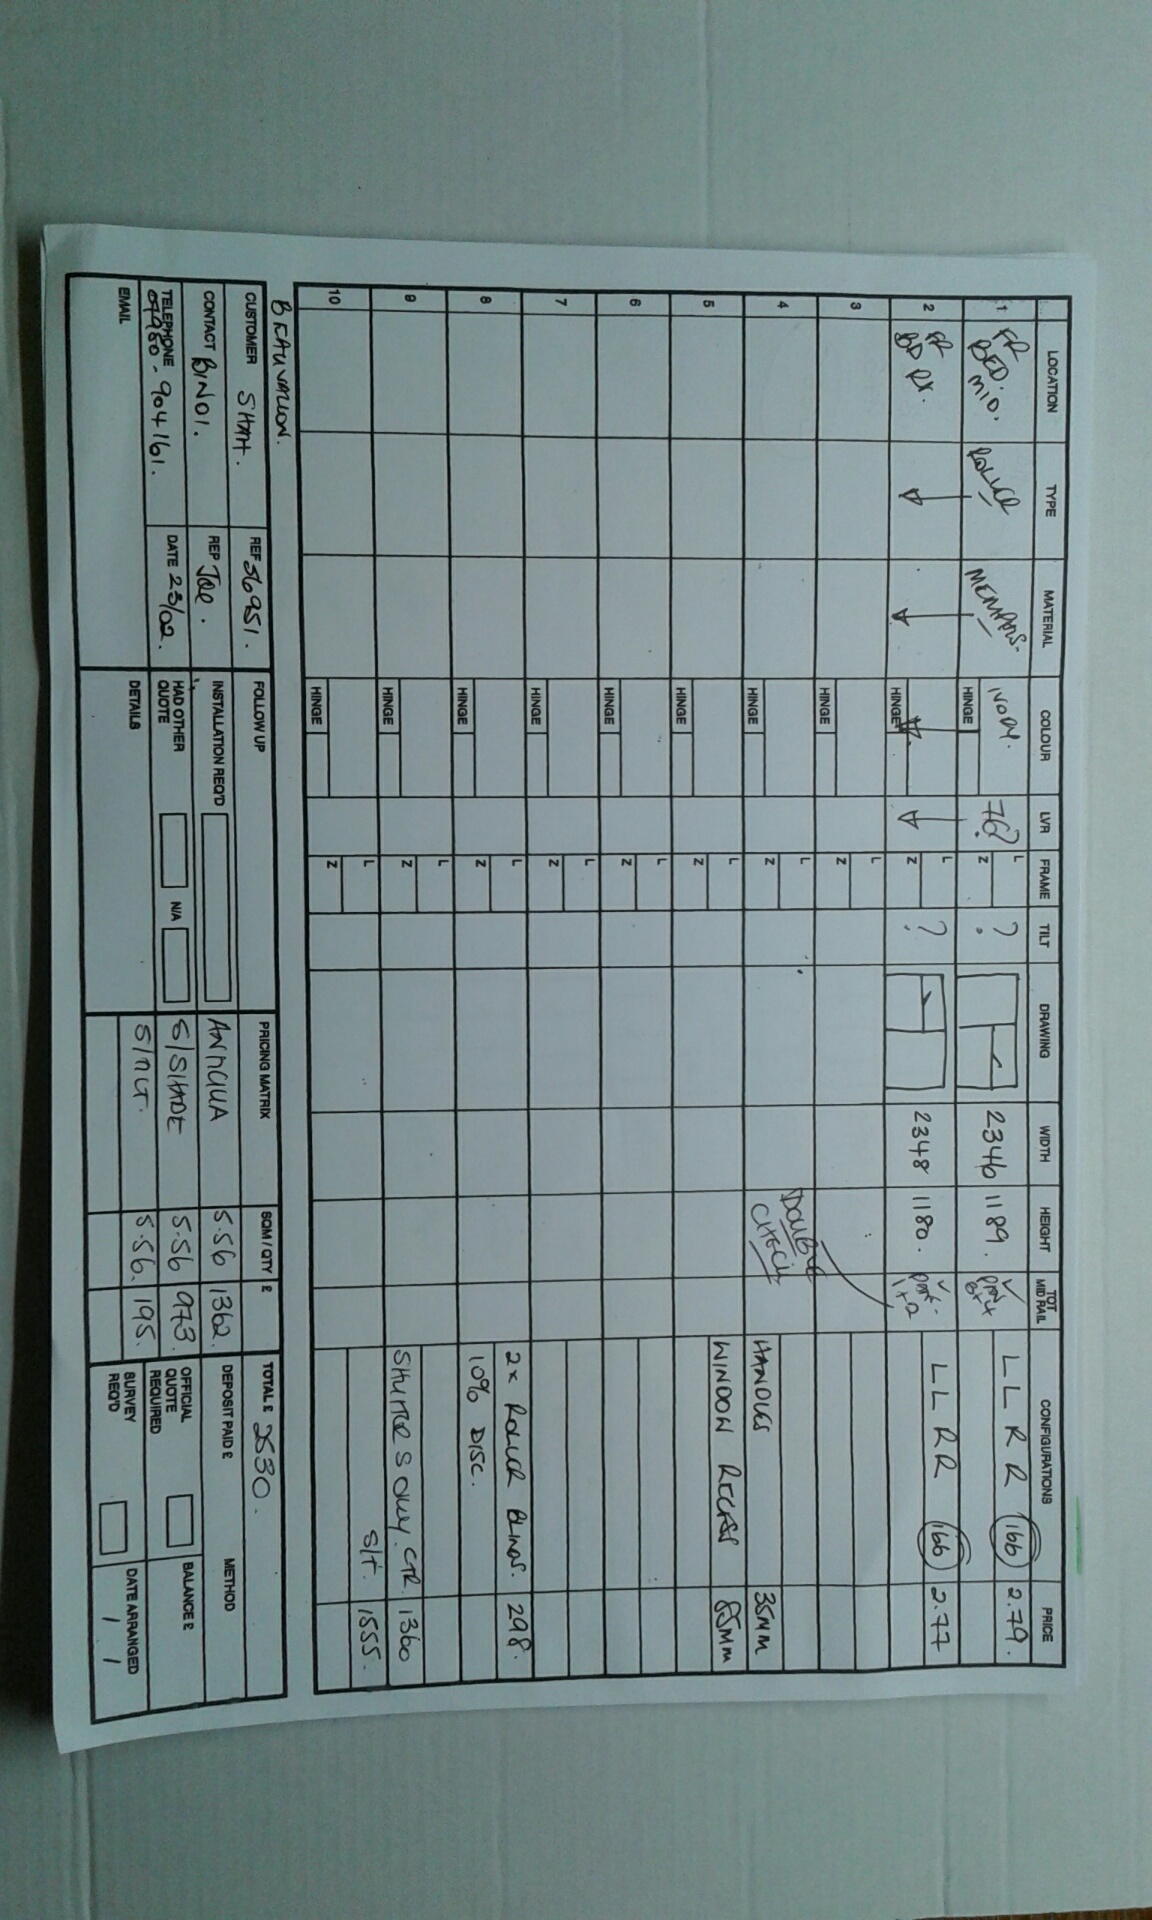 LOCATION TYPE MATERIAL COLOUR LVR FRAME TILT DRAWING WIDTH HEIGHT TOT MID RAIL CONFIGURATIONS PRICE
1 FR BED. MID. ROLLER IVORY. HINGE 762 L Z ? 2346 1189. L L R R 166 2.79.
2 FR BD RX. HINGE L Z ? 2348 1180. L L R R 166 2.77
3 HINGE L Z
DOUBLE CHECK
4 HINGE L Z HANDLES 35MM
5 HINGE L Z WINDOW RECESS 85MM
6 HINGE L Z
7 HINGE L Z
8 HINGE L Z 2x ROLLER BLINDS. 298.
10% DISC.
9 HINGE L Z SHUTTERS ONLY. CTR 1360
10 HINGE L Z S/T. 1555.
BEAUVALLON.
CUSTOMER SHAH. REF 56951. FOLLOW UP PRICING MATRIX SQM / QTY £ TOTAL £ 2530.
CONTACT BINOI. REP Joe. INSTALLATION REQ'D ANTIGUA 5.56 1362. DEPOSIT PAID £ METHOD
TELEPHONE 07980-904161. DATE 23/02. HAD OTHER QUOTE N/A S/SHADE 5.56 973. OFFICIAL QUOTE REQUIRED BALANCE £
EMAIL DETAILS S/TILT. 5.56. 195. SURVEY REQ'D DATE ARRANGED / /